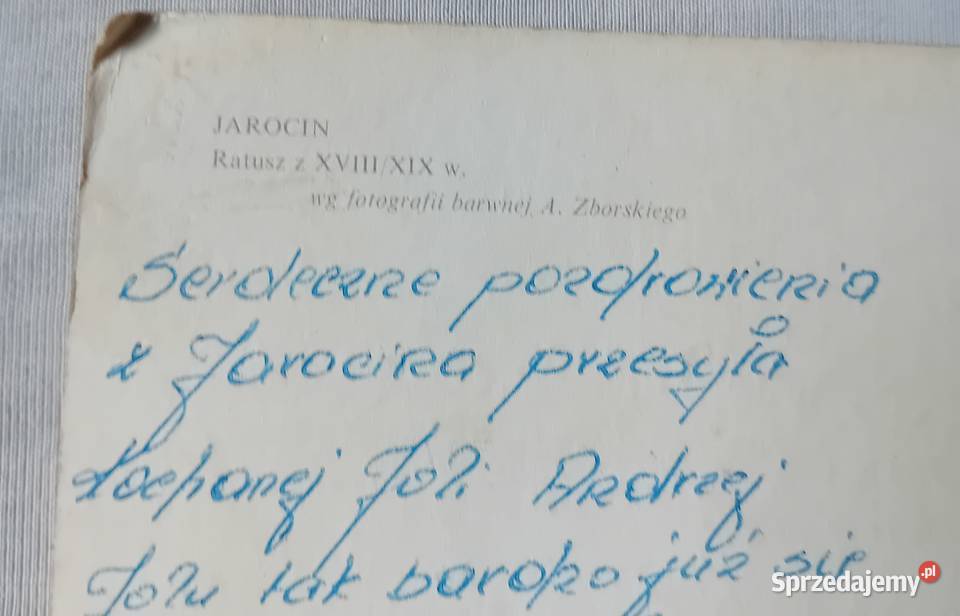 JAROCIN
Ratusz z XVIII/XIX w.
wg fotografii barwnej A. Zborskiego
Serdeczne pozdrowienia
z Jarocina przesyła
Kochanej Joli Andrzej
Jolu tak bardzo już się
Sprzedajemy.pl